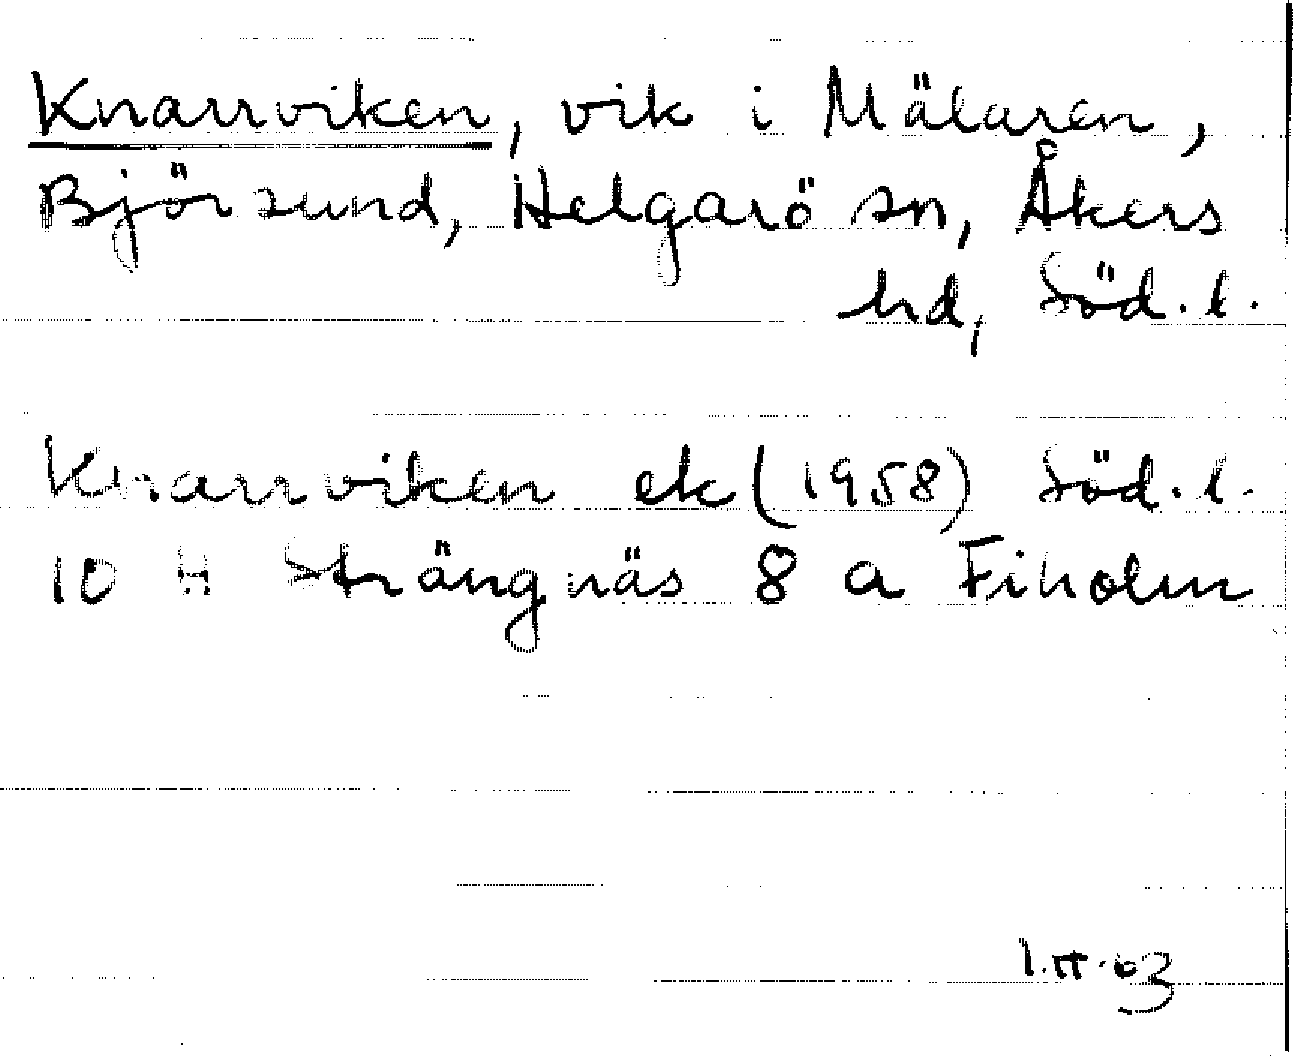 Knarrviken, vik i Mälaren,
Björsund, Helgarö sn, Åkers
hd, Söd. l.
Knarrviken ek (1958) Söd. l.
10 H Strängnäs 8 a Fiholm
1.II.63